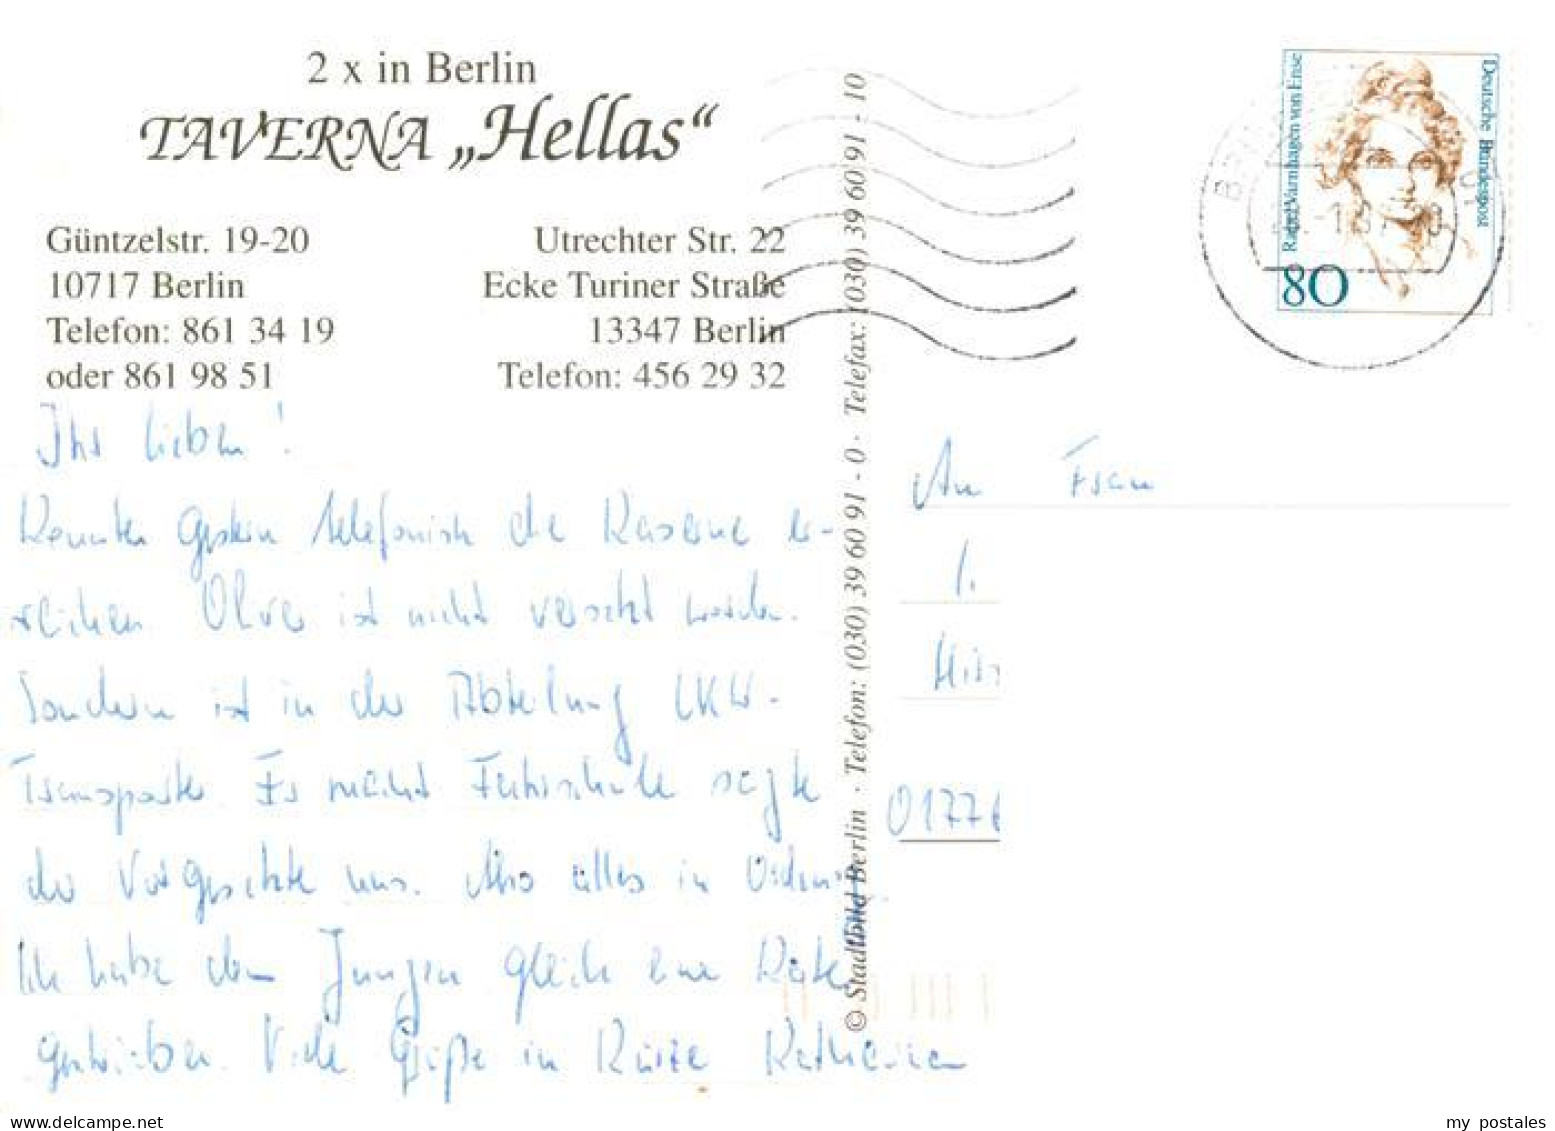 2 x in Berlin
TAVERNA „Hellas“
Güntzelstr. 19-20
10717 Berlin
Telefon: 861 34 19
oder 861 98 51
Utrechter Str. 22
Ecke Turiner Straße
13347 Berlin
Telefon: 456 29 32
Ihr lieben!
Konnten gestern telefonisch die Kaserne er-
reichen. Oliver ist nicht versetzt worden.
Sondern ist in der Abteilung LKW-
Transporter. Er macht Fahrschule sagte
der Vorgesetzte uns. Also alles in Ordnung.
Ich habe dem Jungen gleich eine Karte
geschrieben. Viele Grüße in Kürze Katharina
© Stadtbild Berlin · Telefon: (030) 39 60 91 - 0 · Telefax: (030) 39 60 91 - 10
Rahel Varnhagen von Ense
Deutsche Bundespost
80
An Frau
1.
01776
my postales